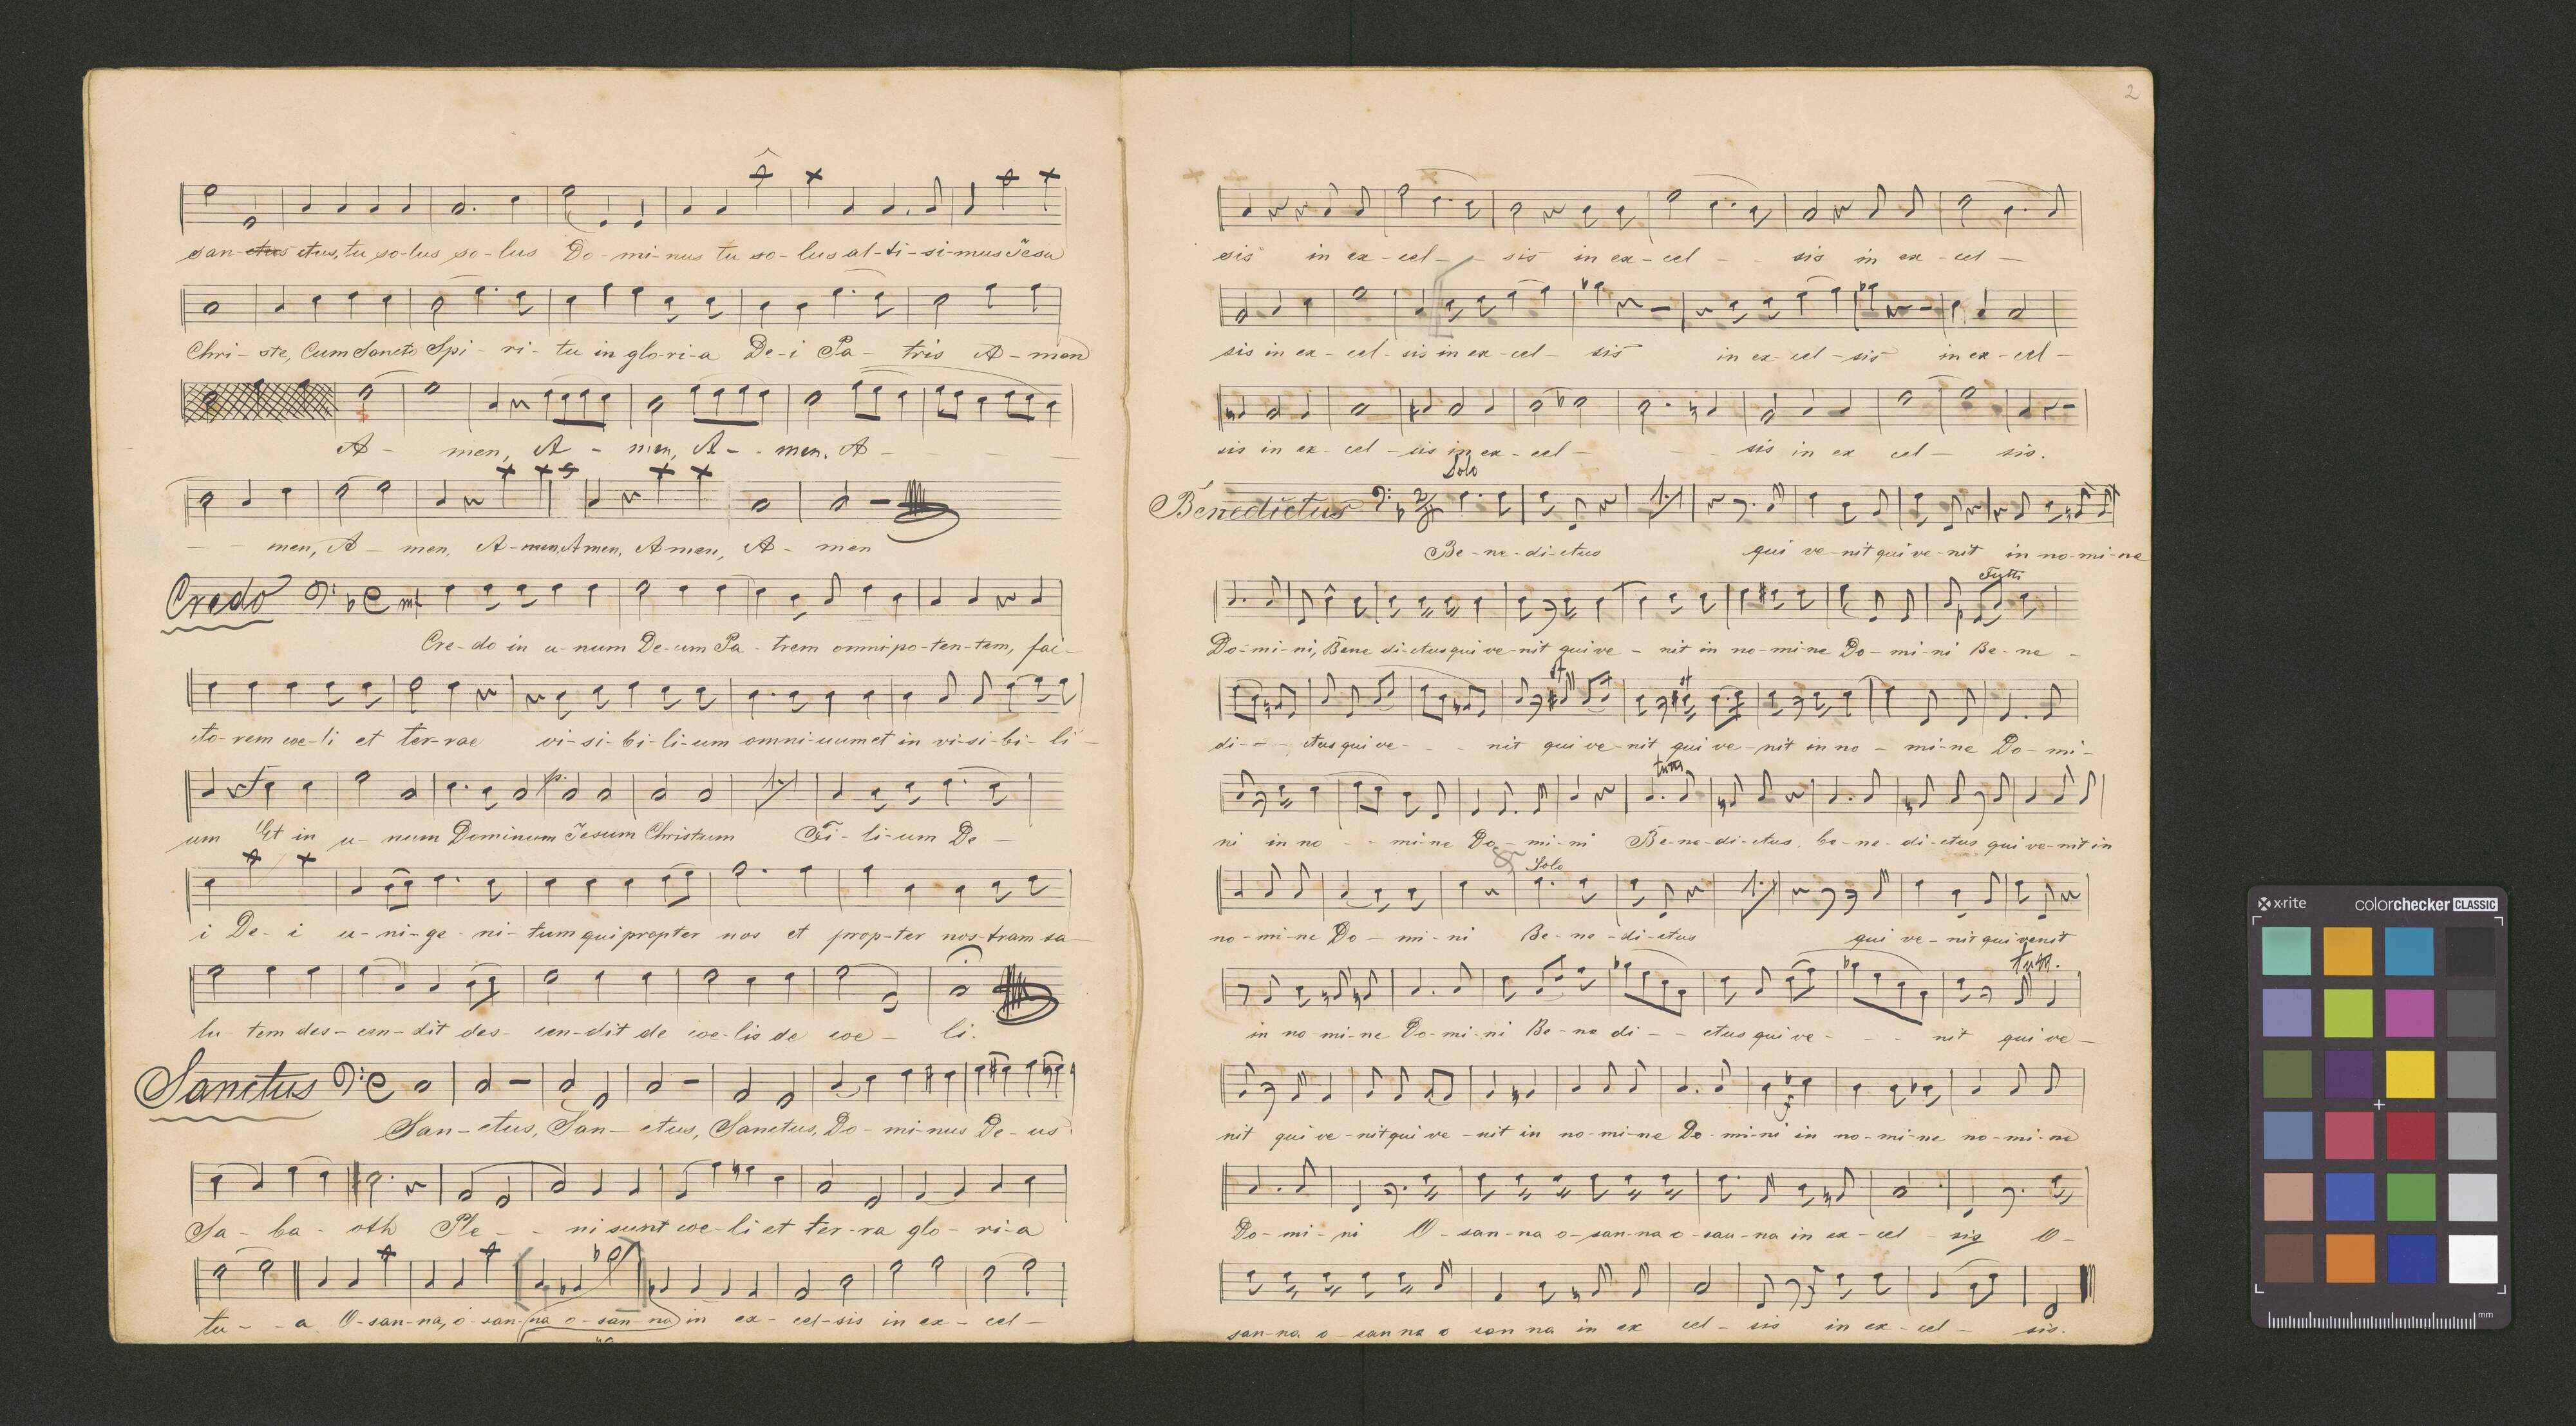 san-ctus ctus, tu so-lus so-lus Do-mi-nus tu so-lus al-ti-si-mus Jesu
Chri-ste, Cum Sancto Spi-ri-tu in glo-ri-a De-i Pa-tris A-men
A-men, A-men, A--men, A-
--men, A-men, A-men, Amen, Amen, A-men
Credo mf
Cre-do in u-num De-um Pa-trem omnipo-ten-tem, fac-
cto-rem coe-li et ter-rae vi-si-bi-li-um omni-uum et in vi-si-bi-li-
um Et in u-num Dominum Jesum Christum Fi-li-um De-
i De-i u-ni-ge-ni-tum qui propter nos et prop-ter nos-tram sa-
lu-tem des-cen-dit des-cen-dit de coe-lis de coe-li.
Sanctus
San-ctus, San-ctus, Sanctus, Do-mi-nus De-us
Sa-ba-oth Ple--ni sunt coe-li et ter-ra glo-ri-a
tu--a O-san-na, o-san-na o-san-na in ex-cel-sis in ex-cel-
2
sis in ex-cel--sis in ex-cel--sis in ex-cel-
sis in ex-cel-sis in ex-cel-sis in ex-cel-sis in ex-cel-
sis in ex-cel-sis in ex-cel---sis in ex cel-sis.
Solo
Benedictus
Be-ne-di-ctus qui ve-nit qui ve-nit in no-mi-ne
Tutti
Do-mi-ni, Bene di-ctus qui ve-nit qui ve-nit in no-mi-ne Do-mi-ni Be-ne-
di--ctus qui ve---nit qui ve-nit qui ve-nit in no-mi-ne Do-mi-
tutti
ni in no--mi-ne Do-mi-ni Be-ne-di-ctus, be-ne-di-ctus qui ve-nit in
Solo
no-mi-ne Do-mi-ni Be-ne-di-ctus qui ve-nit qui venit
tutti.
in no-mi-ne Do-mi-ni Be-ne di--ctus qui ve---nit qui ve-
nit qui ve-nit qui ve-nit in no-mi-ne Do-mi-ni in no-mi-ne no-mi-ne
Do-mi-ni O-san-na o-san-na o-sau-na in ex-cel-sis O-
san-na o-san na o san na in ex cel-sis in ex-cel-sis.
x-rite colorchecker CLASSIC
mm